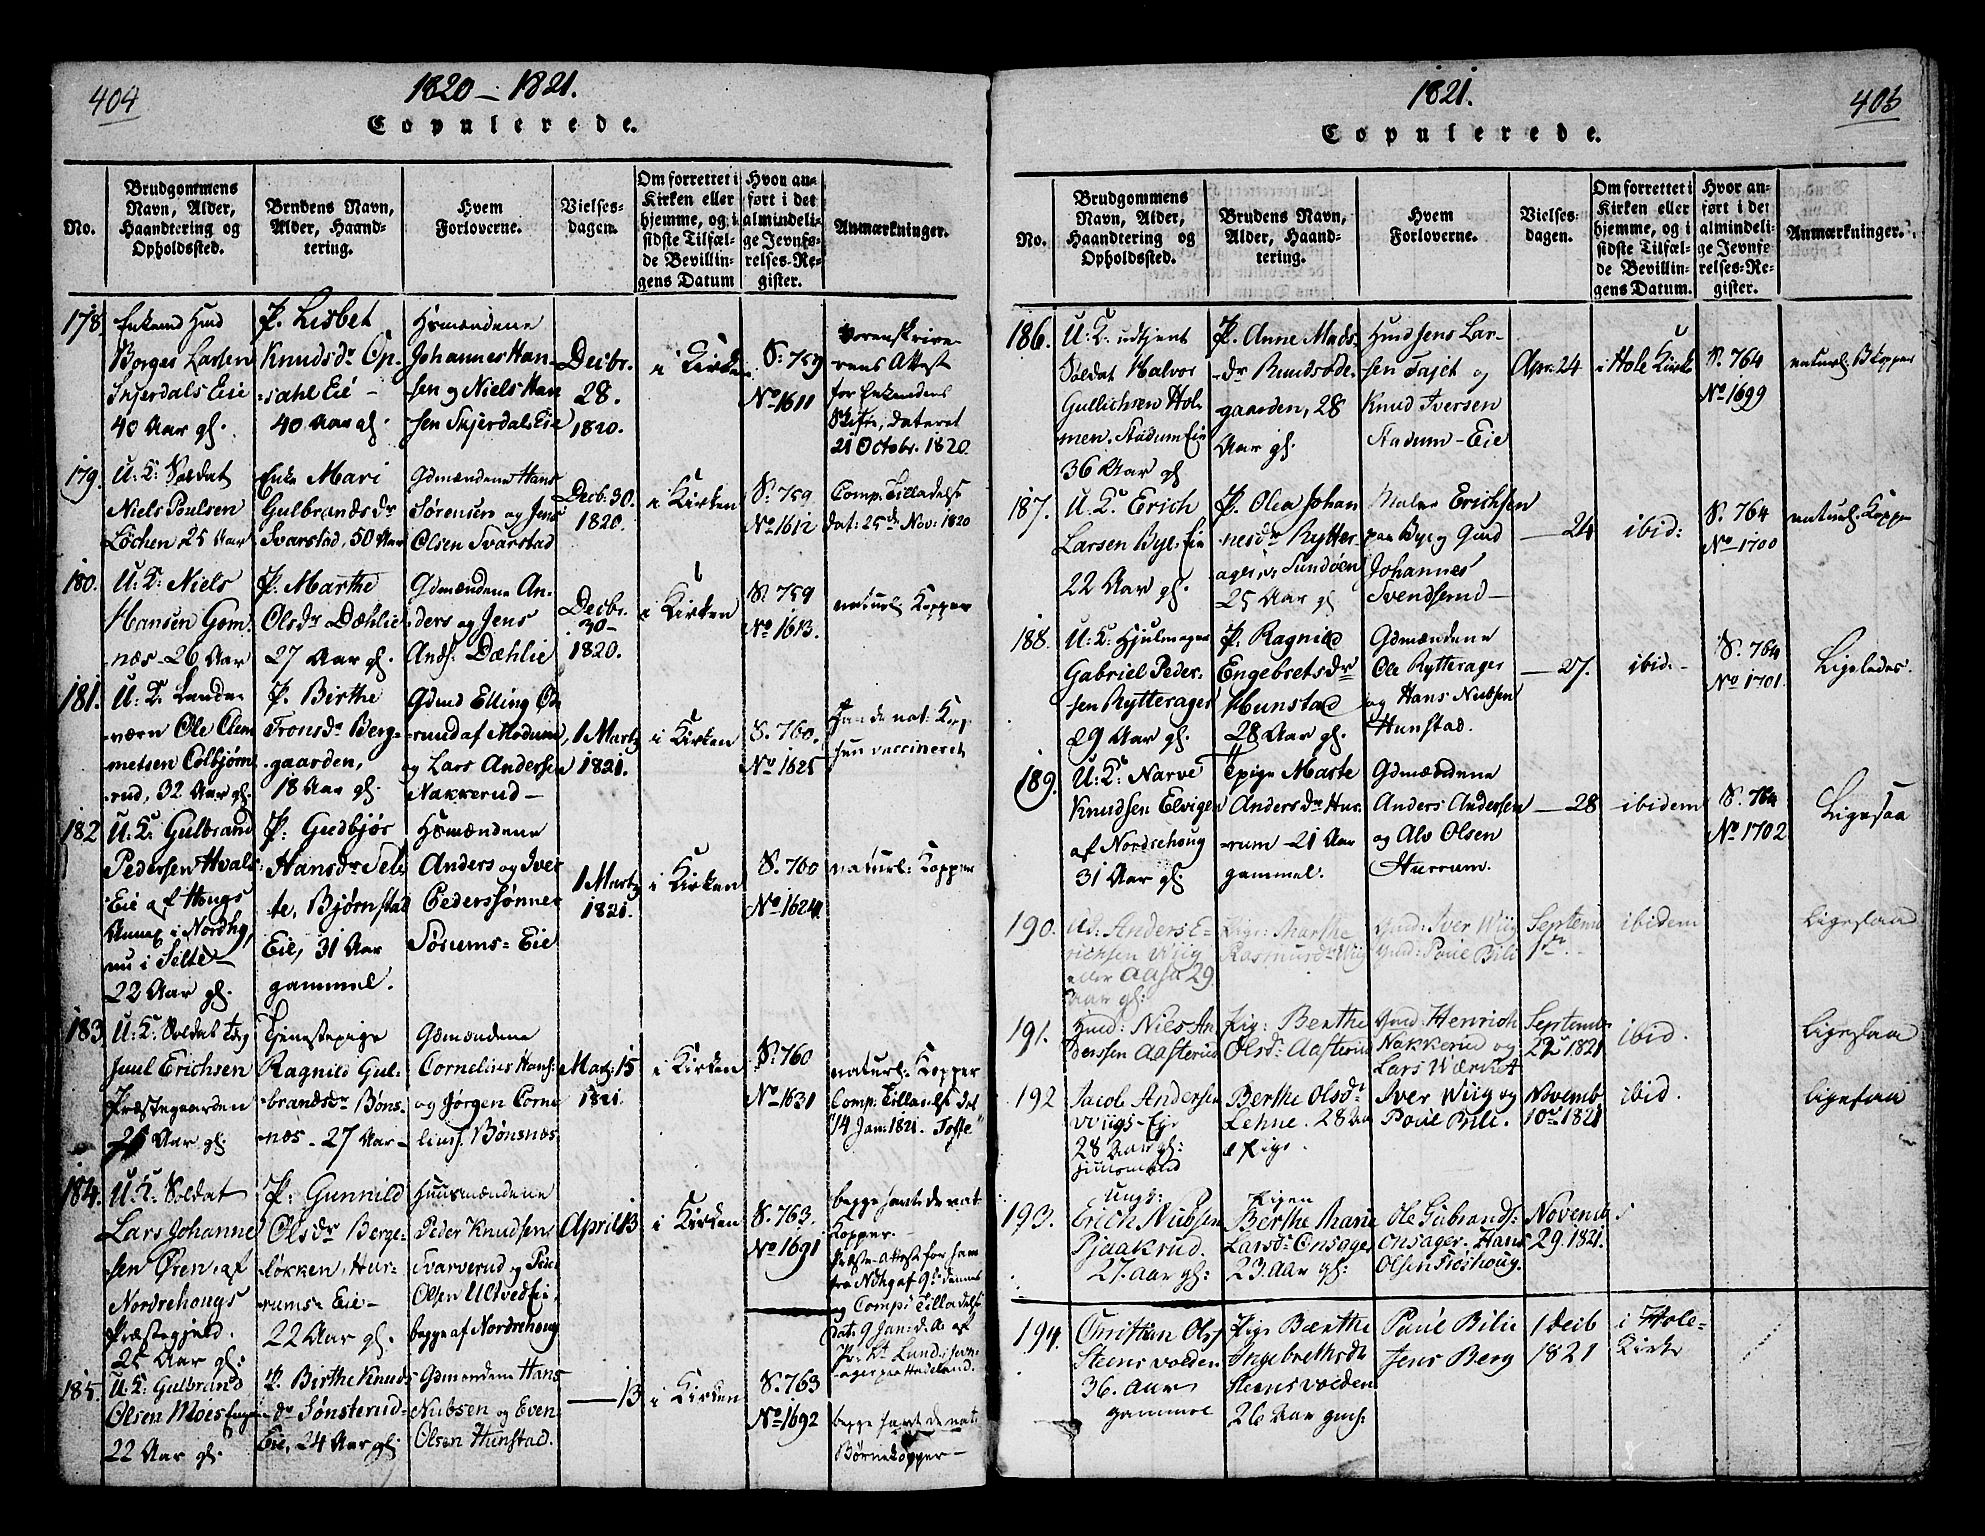 404
1820 – 1821.
Copulerede.
No.
Brudgommens Navn, Alder, Haandtering og Opholdssted.
Brudens Navn, Alder, Haandtering.
Hvem Forloverne.
Vielses-dagen.
Om forrettet i Kirken eller hjemme, og i sidste Tilfælde Bevillingens Datum
Hvor anført i det almindelige Jevnførelses-Register.
Anmærkninger.
178.
Enkemd Hmd
Borger Larsen
Skjerdals Eie
40 Aar gl.
P. Lisbet
Knudsdr Op-
sahl Eie –
40 Aar gl.
Hsmændene
Johannes Han-
sen og Niels Han
sen Skjerdals Eie
Decbr.
28.
1820.
i Kirken
S. 759
No 1611
Sorenskrive-
rens Attest
for Enkemdens
Skifte, dateret
21 Octobr. 1820
179.
U: K: Soldat
Niels Poulsen
Løchen 25 Aar
Enke Mari
Gulbrandsdr
Svarstad, 50 Aar
Gdmændene Hans
Sørensen og Jens
Olsen Svarstad
Decb: 30.
1820.
i Kirken
S. 759
No 1612
Comp: Tilladelse
dat: 25de Nov: 1820
180.
U: K: Niels
Hansen Gom-
næs – 26 Aar
P. Marthe
Olsdr Dæhlie
27 Aar gl.
Gdmændene An-
ders og Jens
Ands. Dæhlie
Decbr.
30 –
1820.
i Kirken
S. 759
No 1613.
naturl. Kopper
181.
U: K. Landa-
værn Ole Clem
metsen Colbjørn
rud, 32 Aar gl.
P. Birthe
Tronsdr Berg-
gaarden,
18 Aar gl.
Gdmd Elling
rud af Modum,
og Lars Andersen
Nakkerud –
1 Marty
1821.
i Kirken
S. 760.
No 1625
Han de nat: Kop
hun vaccineret
182
U: K. Gulbrand
Pedersen Hvals
Eie af Hougs
Annex i Nordhg,
nu i Selte –
22 Aar gl.
P: Gudbjør
Hansdr Sel-
te, Bjørnstad
Eie, 31 Aar
gammel.
Hsmændene
Anders og Iver
Pederssønner
Sørums = Eie
1 Marty
1821.
i Kirken
S. 760
No 1624
naturl: Kopper
183
U: K. Soldat
Juul Erichsen
Præstegaarden
Aar gl.
Tjenestepige
Ragnild Gul-
brandsdr Bøns-
næs – 27 Aar –
Gdmændene
Cornelius Hans:
og Jørgen Corne
lius. Bønsnæs
Marty: 15
1821.
i Kirken
S. 760
No 1631
naturl: Kopper
Comp: Tilladelse dat
14 Jan: 1821.
184.
U: K. Soldat
Lars Johanne-
sen Øren, af
Nordrehougs
Præstegjeld.
25 Aar gl:
P: Gunnild
Olsdr Berge-
løkken, Hur-
rums = Eie –
22 Aar gl.
Huusmændene
Peder Knudsen
Svarverud og Peder
Olsen Ultved Ei,
begge af Nordrehoug
April 13
i Kirken
S. 763.
No 1691
begge havte de nat
Kopper –
Præste-Attest for ham
fra Nhg af 9de dennes
og Comp: Tilladelse
dat: 9 Jan: d. A. af
185.
U. K: Gulbrand
Olsen Moes
22 Aar gl.
P. Birthe Knuds
dr Sønsterud-
Eie, 24 Aar gl.
Gdmændene Hans
Nubsen og Even
Olsen Hunstad.
— 13
i Kirken
S. 763
No 1692
begge havt de nat:
Børnekopper –
1821.
405
Copulerede.
No.
Brudgommens Navn, Alder, Haandtering og Opholdssted.
Brudens Navn, Alder, Haandtering.
Hvem Forloverne.
Vielses-dagen.
Om forrettet i Kirken eller hjemme, og i sidste Tilfælde Bevillingens Datum.
Hvor anført i det almindelige Jevnførelses-Register.
Anmærkninger.
186.
U: K. udtjent
Soldat Halvor
Gullichsen Hol-
men, Stadum Eie
36 Aar gl
P. Anne Mads-
dr Bundsøde-
gaarden, 28
Aar gl.
Hmd Jens Lar-
sen Fajet og
Knud Iversen
Stadum – Eie
Apr: 24
i Hole Kirke
S. 764
No 1699
naturl. B Kopper
187.
U. K. Erich
Larsen Bye-Eie
22 Aar gl.
P. Olea Johan
nesdr Rytter-
ager Sundøen
25 Aar gl
Erichsen
paa Bye og Gmd
Johannes
Svendserud –
— 24
ibid:
S. 764
No 1700
naturl. Kopper
188.
U: K: Hjulmager
Gabriel Peder-
sen Rytterager
29 Aar gl.
P. Ragnild
Engebretsdr
Hunstad
28 Aar gl.
Gdmændene
Ole Rytterager
og Hans Nubsen
Hunstad.
— 27.
ibid: –
S. 764
No 1701.
Ligeledes.
189.
U: K. Narve
Knudsen Elvigen
af Nordrehoug
31 Aar gl.
Tpige Marte
Andersdr Hur-
rum – 21 Aar
gammel.
Gdmændene
Anders Andersen
og Alv Olsen
Hurrum.
— 28
ibidem
S. 764
No 1702
Ligesaa
190.
Anders E-
richsen Wiig
eller Aasa 29
aar gl:
Pige: Marthe
Rasmusdr Wiig
Gmd: Iver Wiig
Gmd: Poul Bili
Septemb
1te. –
ibidem
Ligesaa
191.
Gmd: Niels An
derssen Aasterud
Pig: Berthe
Olsdr Aasterud
Gmd: Henrich
Nakkerud og
Lars Wærket
Septembr
22 1821
ibid.
Ligesaa
192
Jacob Andersen
Wiigs-Eje
28 Aar gl:
Huusmand
Berthe Olsdr
Lehne. 28 Aar
Pige.
Iver Wiig og
Poul Bili.
Novemb
10de 1821
ibid.
Ligesaa
193.
Ungk:
Erich Nubsen
Pjaakrud.
27. Aar gl:
Pigen
Berthe Marie
Larsdr Onsager
23. Aar gl:
Ole Gulbrands.
Onsager. Hans
Olsen Frøshoug.
Novemb
29. 1821.
194.
Christian Ols.
Steensvolden
36. Aar
gammel
Pige Bærthe
Ingebrethsdr
Steensvolden
26 Aar gml.
Poul Bili
Jens Berg
1 decb
1821
i Hole-
Kirke